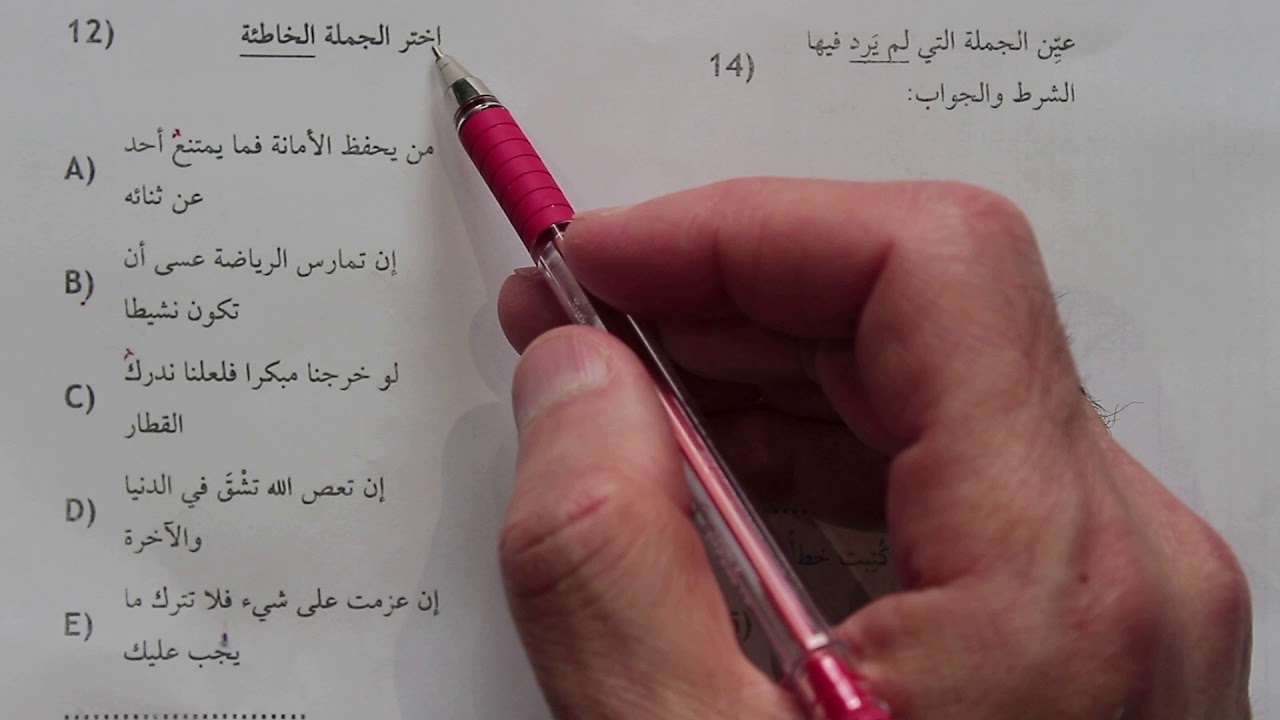 12) اختر الجملة الخاطئة
A) من يحفظ الأمانة فما يمتنعُ أحد
عن ثنائه
B) إن تمارس الرياضة عسى أن
تكون نشيطا
C) لو خرجنا مبكرا فلعلنا ندركُ
القطار
D) إن تعص الله تشْقَ في الدنيا
والآخرة
E) إن عزمت على شيء فلا تترك ما
يجب عليك
14) عيِّن الجملة التي لم يَرد فيها
الشرط والجواب:
كُتِبت خطأ